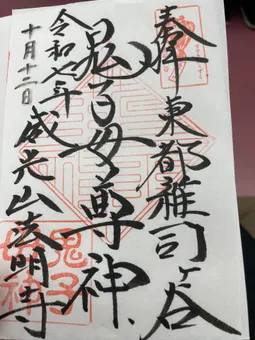 奉拝 東都雑司ヶ谷
鬼子母尊神
令和七年 威光山法明寺
十月十二日
鬼子
母神